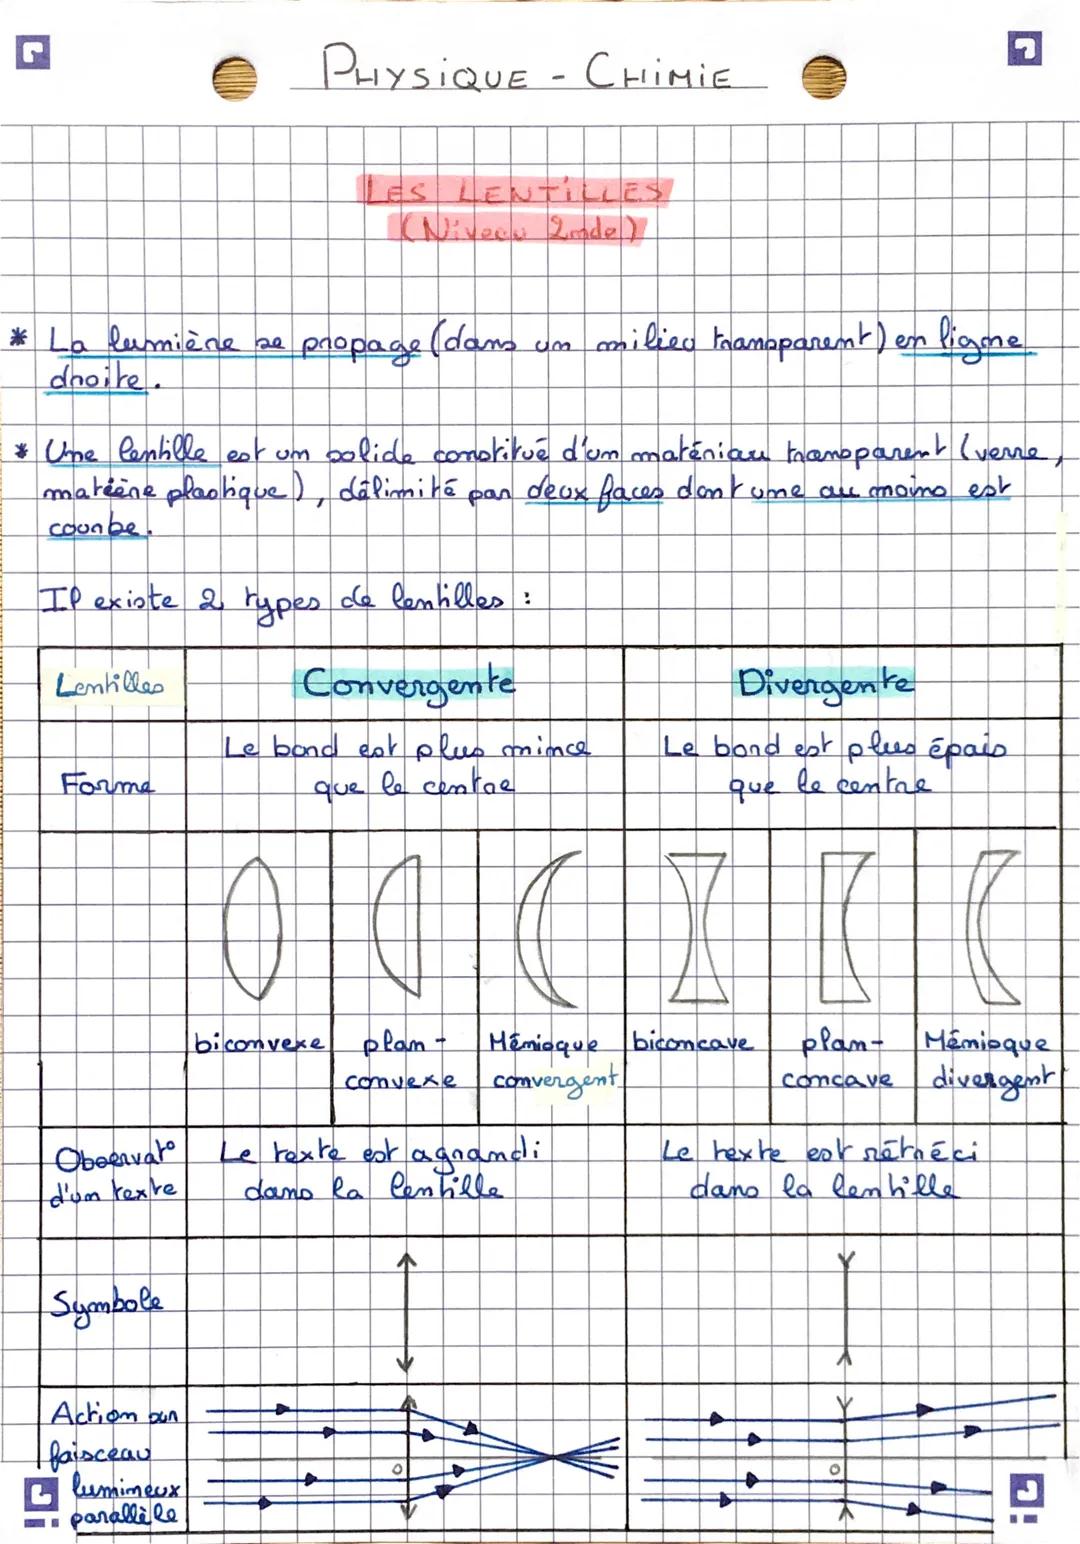 PHYSIQUE - CHIMIE
LES LENTILLES
(Niveau 2nde)
* La lumière se propage (dans un milieu transparent) en ligne
droite.
* Une lentille est un solide constitué d'un matériau transparent (verre,
matière plastique), délimité par deux faces dont une au moins est
courbe.
Il existe 2 types de lentilles :
Lentilles
Convergente
Divergente
Forme
Le bord est plus mince
que le centre
Le bord est plus épais
que le centre
biconvexe
plan-
convexe
Ménisque
convergent
biconcave
plan-
concave
Ménisque
divergent
Observat°
d'un texte
Le texte est agrandi
dans la lentille
Le texte est rétréci
dans la lentille
Symbole
Action sur
faisceau
lumineux
parallèle
O
O